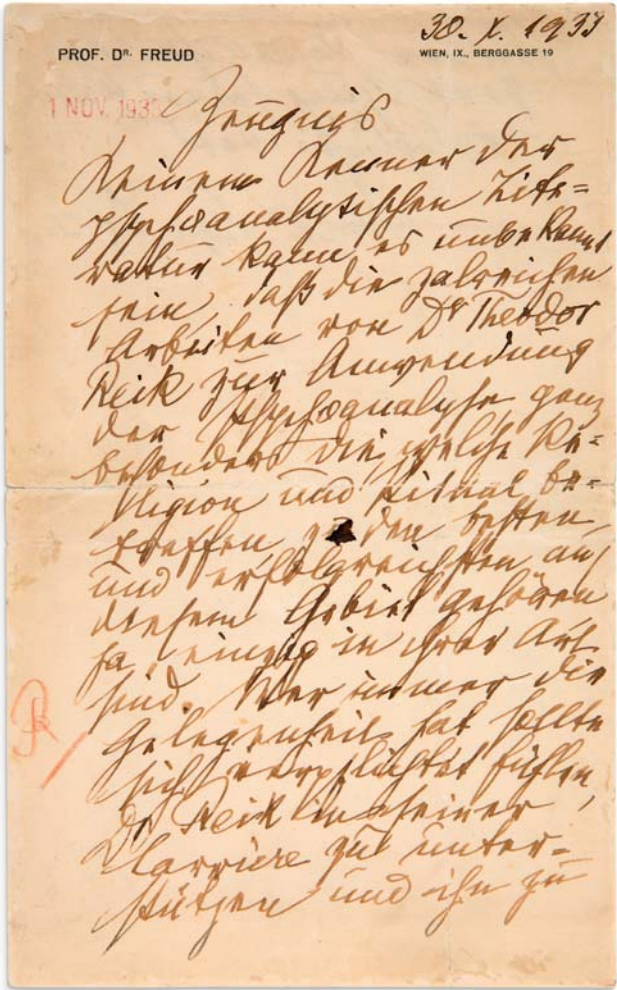 30. X. 1933
PROF. DR. FREUD
WIEN, IX., BERGGASSE 19
1 NOV. 193
Zeugnis
Keinem Kenner der
psychoanalytischen Lite=
ratur kann es unbekannt
sein, daß die zalreichen
Arbeiten von Dr Theodor
Reik zur Anwendung
der Psychoanalyse ganz
besonders die, welche Re=
ligion und Ritual be=
treffen zu den besten
und erfolgreichsten auf
diesem Gebiet gehören
ja, einzig in ihrer Art
sind. Wer immer die
Gelegenheit hat sollte
sich verpflichtet fühlen,
Dr Reik in seiner
Carriere zu unter=
stützen und ihn zu